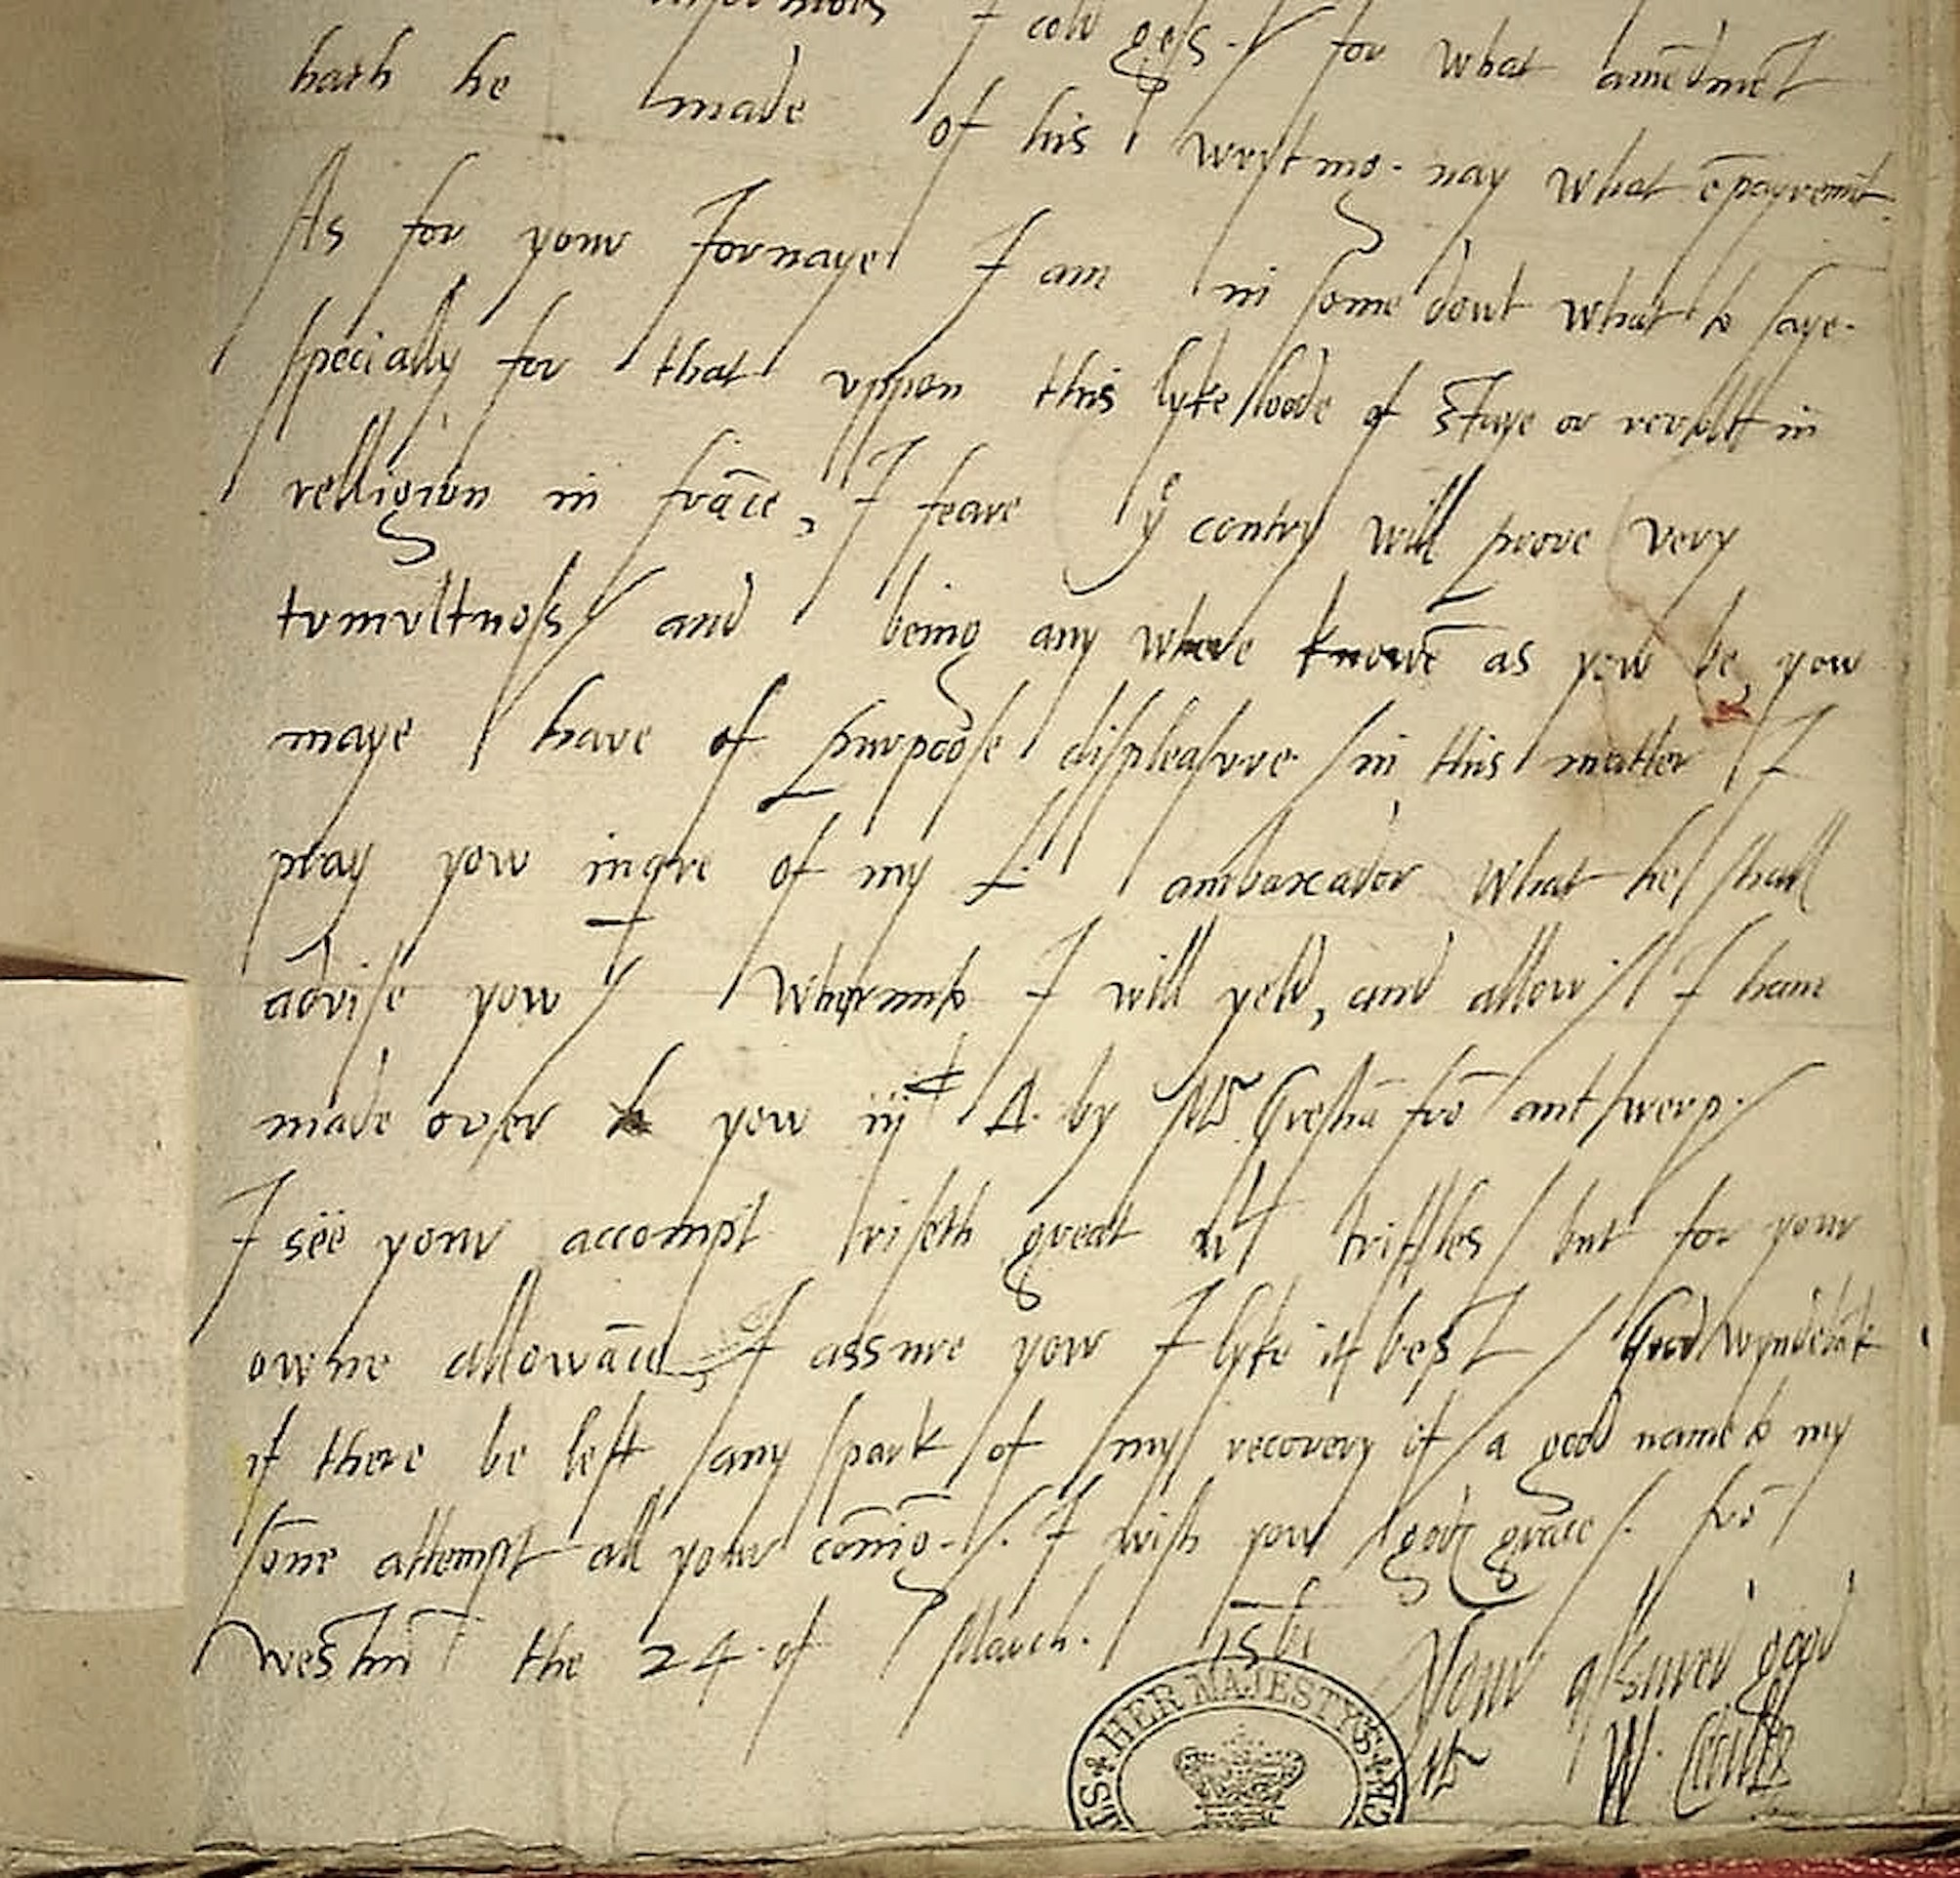 I cold gess. / for what amēdmēt
hath he made of his writing. nay what ēpayremēt.
As for your Jornaye I am in some dout what to saye.
specially for that vppon this lykelloode of staye or revollt in
relligion in frāce, I feare yͤ contry will prove very
tumultuoss / and being any where knowē as yow be yow
maye have of purpoose displeasure. / in this matter I
pray yow inqre of my L. ambaxador what he shall
advise yow / wherunto I will yeld, and allow / I have
made over to yow iijᶜ by Mʳ Greshā frō antwerp. /
I sëë your accompt riseth great wᵗ triffles / but for your
owne allowāce, I assure yow I lyke it best / Good wyndebāk
if there be left any spark of my recovery of a good name to my
sone attempt all your cōnīg. / . I wish yow godͤ grace / . frō
Westmʳ the 24. of March. 1561
Your assured good
Mʳ W. Cecill
HER MAJESTY'S